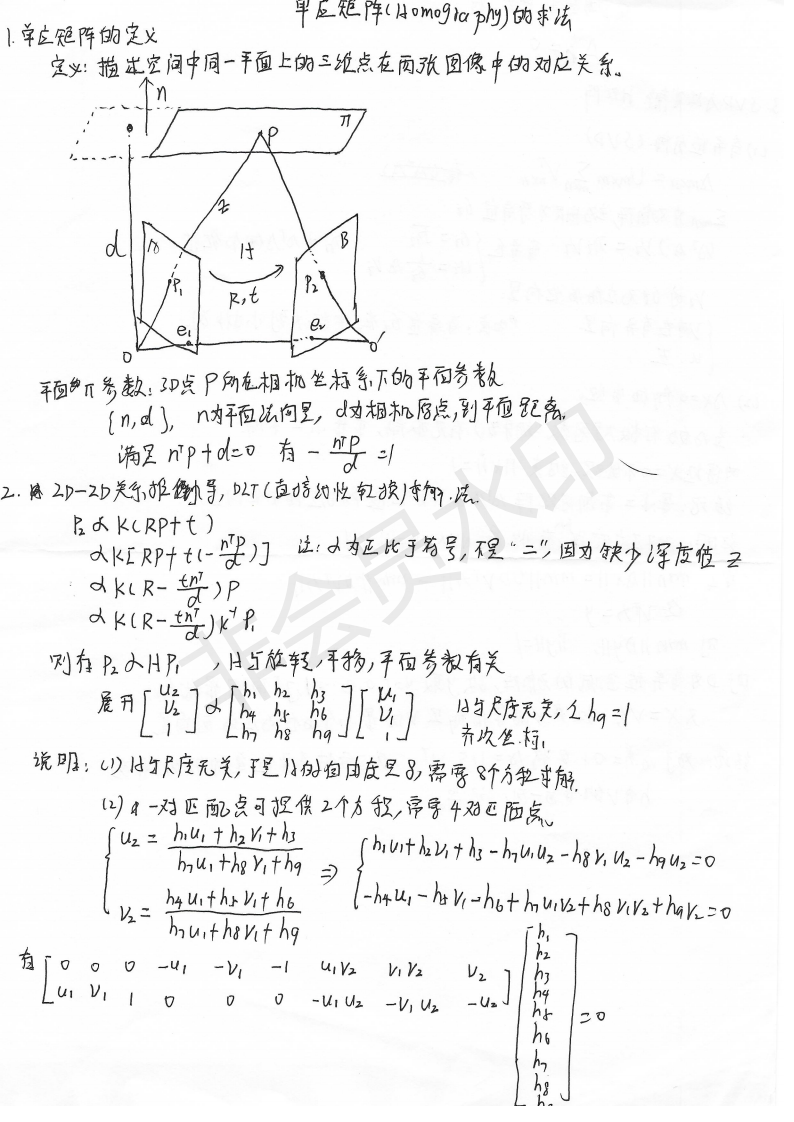 单应矩阵(Homography)的求法
1.单应矩阵的定义
定义:描述空间中同一平面上的三维点在两张图像中的对应关系。
n
π
P
z
d
A
H
B
P₁
R,t
P₂
e₁
e₂
O
O'
平面π参数:3D点P所在相机坐标系下的平面参数
{n,d}, n为平面法向量, d为相机原点,到平面距离,
满足 nᵀP+d=0 有 -nᵀP/d=1
2. 2D-2D关系推导,DLT(直接线性变换)求解法.
P₂ ∝ K(RP+t)
∝ K[RP+t(-nᵀP/d)] 注:∝为正比于符号,不是"=",因为缺少深度值 z
∝ K(R-tnᵀ/d)P
∝ K(R-tnᵀ/d)K⁻¹P₁
则有 P₂ ∝ HP₁ ,H与旋转,平移,平面参数有关
展开 [u₂ v₂ 1] ∝ [h₁ h₂ h₃ h₄ h₅ h₆ h₇ h₈ h₉] [u₁ v₁ 1] H与尺度无关,令h₉=1
齐次坐标,
说明:(1) H与尺度无关,于是H的自由度是8,需要8个方程求解.
(2) 一对匹配点可提供2个方程,需要4对匹配点。
{ u₂ = (h₁u₁+h₂v₁+h₃)/(h₇u₁+h₈v₁+h₉) ⇒ { h₁u₁+h₂v₁+h₃-h₇u₁u₂-h₈v₁u₂-h₉u₂=0
v₂ = (h₄u₁+h₅v₁+h₆)/(h₇u₁+h₈v₁+h₉) -h₄u₁-h₅v₁-h₆+h₇u₁v₂+h₈v₁v₂+h₉v₂=0
有 [0 0 0 -u₁ -v₁ -1 u₁v₂ v₁v₂ v₂
u₁ v₁ 1 0 0 0 -u₁u₂ -v₁u₂ -u₂]
[h₁
h₂
h₃
h₄
h₅
h₆
h₇
h₈
h₉] =0
非会员水印